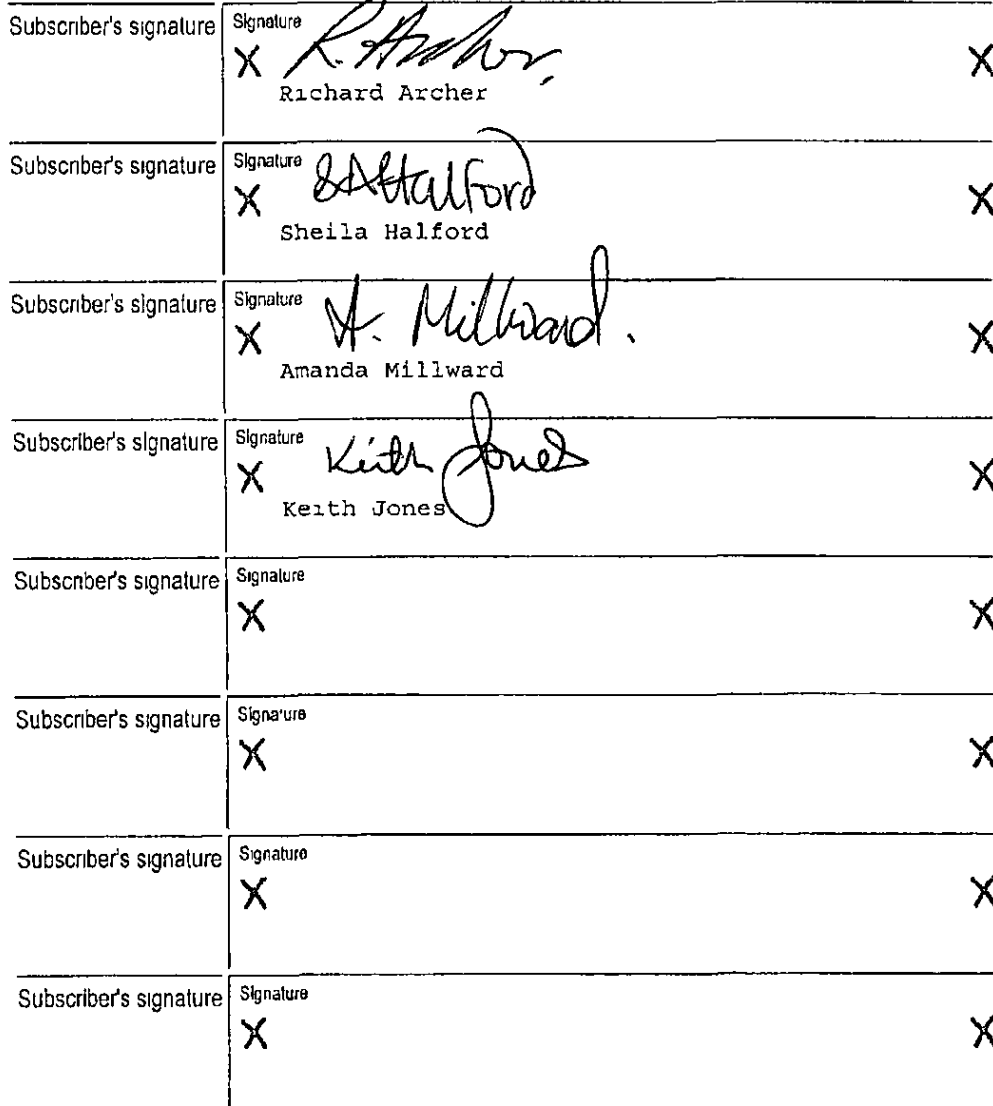 Subscriber's signature
Signature
X R. Archer. X
Richard Archer
Subscriber's signature
Signature
X S A Halford X
Sheila Halford
Subscriber's signature
Signature
X A. Millward. X
Amanda Millward
Subscriber's signature
Signature
X Keith Jones X
Keith Jones
Subscriber's signature
Signature
X X
Subscriber's signature
Signature
X X
Subscriber's signature
Signature
X X
Subscriber's signature
Signature
X X